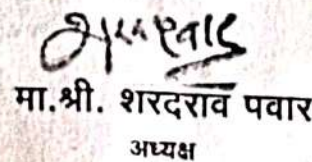 मा.श्री. शरदराव पवार
अध्यक्ष